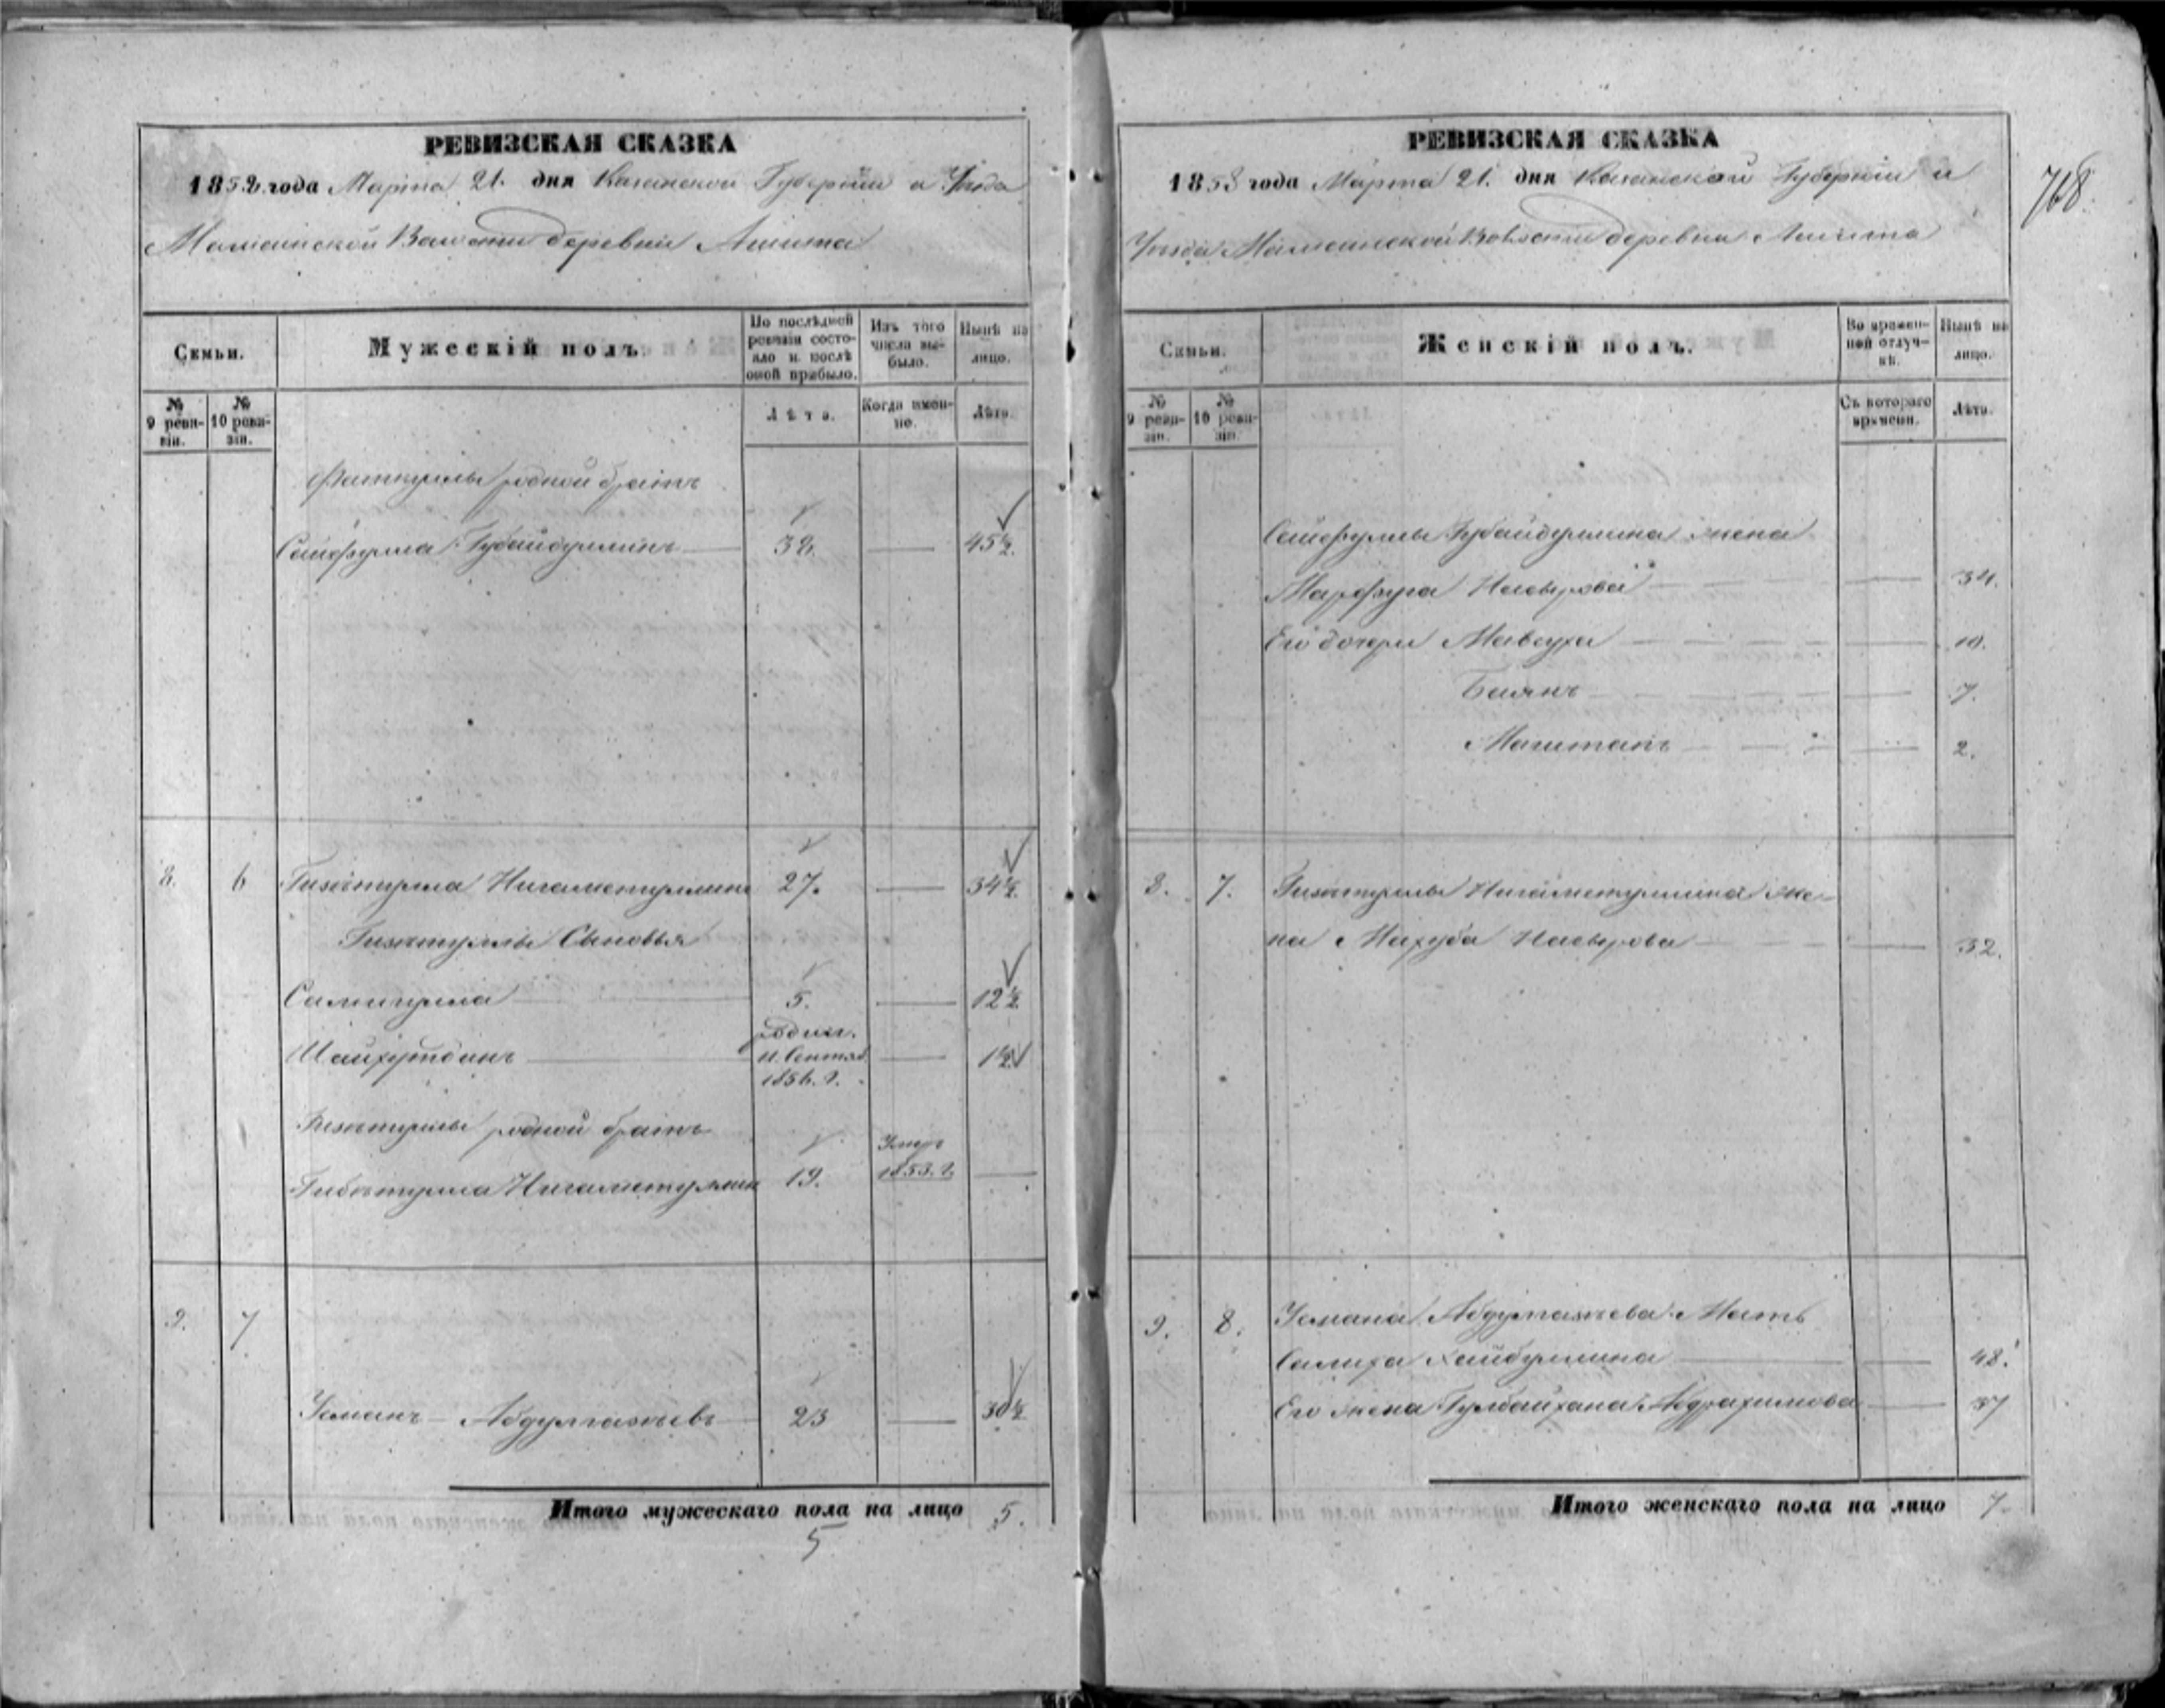 РЕВИЗСКАЯ СКАЗКА
1858 года Марта 21. дня Казанской Губернии и Уѣзда
Мамсинской Волости деревни Ашита
Семьи.
Мужескій полъ.
По послѣдней ревизіи состояло и послѣ оной прибыло.
Изъ того числа выбыло.
Нынѣ на лицо.
№ 9 ревизіи.
№ 10 ревизіи.
Лѣта.
Когда именно.
Лѣта.
Фаткуллы родной братъ
Сайфулла Губайдуллинъ 38. 45½.
8. 6 Гизятулла Нигаметуллинъ 27. 34½.
Гизятуллы Сыновья
Самигулла 5. 12½
Шайхутдинъ родил. 11. Сентяб. 1856. г. 1½
Гизятуллы родной братъ
Гибятулла Нигаметуллин 19. Умеръ 1853. г.
9. 7 Усманъ Абдулгазыевъ 23 30½
Итого мужескаго пола на лицо 5.
5
768.
РЕВИЗСКАЯ СКАЗКА
1858 года Марта 21. дня Казанской Губерніи и
Уѣзда Мамсинской Волости деревни Ашита
Семьи.
Женскій полъ.
Во временной отлучкѣ.
Нынѣ на лицо.
№ 9 ревизіи.
№ 10 ревизіи.
Съ котораго времени.
Лѣта.
Сайфуллы Губайдуллина жена
Марфуга Насырова 34.
Его дочери Мавсуфа 10.
Баянъ 7.
Магитапъ 2.
8. 7. Гизятуллы Нигаметуллина же-
на Махуба Насырова 32.
9. 8. Усмана Абдулгазыева Мать
Салиха Хайбуллина 48.
Его жена Гулбайхана Абдрахимова 37
Итого женскаго пола на лицо 7.